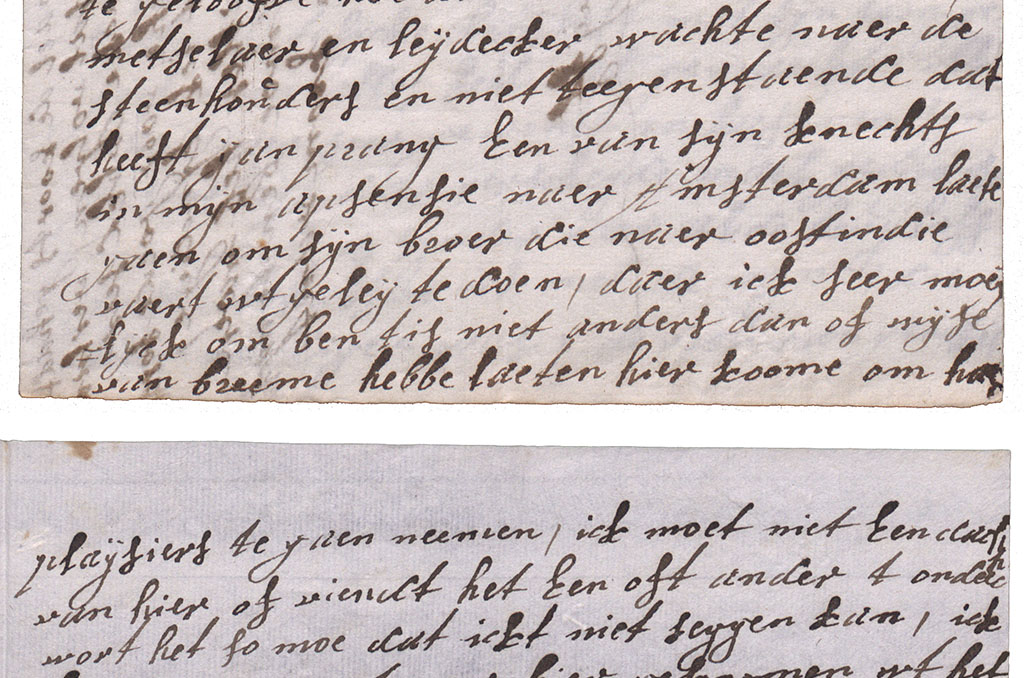 te geloofte
metselaer en leijdecker wachte naer de
steenhouders en niet teegenstaende dat
heeft jan prang een van sijn knechts
in mijn apsensie naer Amsterdam laete
gaen om sijn broer die naer oostindie
vaert wtgeleij te doen, daer ick seer moeij
lijck om ben tis niet anders dan of wijse
van breeme hebbe laeten hier koome om haer
plaijsiers te gaen neemen, ick moet niet een dach
van hier of viendt het een oft ander t ondeech
wort het so moe dat ickt niet seggen kan, ick
hier wt het